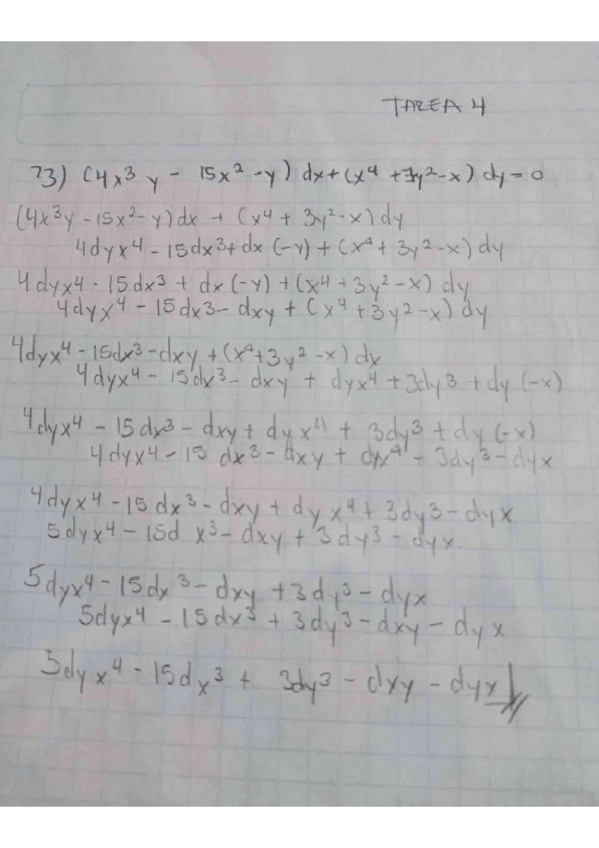 TAREA 4
23) (4x³y - 15x² - y) dx + (x⁴ + 3y² - x) dy = 0
(4x³y - 15x² - y) dx + (x⁴ + 3y² - x) dy
4dyx⁴ - 15dx³ + dx (-y) + (x⁴ + 3y² - x) dy
4dyx⁴ - 15dx³ + dx (-y) + (x⁴ + 3y² - x) dy
4dyx⁴ - 15dx³ - dxy + (x⁴ + 3y² - x) dy
4dyx⁴ - 15dx³ - dxy + (x⁴ + 3y² - x) dx
4dyx⁴ - 15dx³ - dxy + dyx⁴ + 3dy³ + dy (-x)
4dyx⁴ - 15dx³ - dxy + dyx⁴ + 3dy³ + dy (-x)
4dyx⁴ - 15 dx³ - dxy + dyx⁴ - 3dy³ - dyx
4dyx⁴ - 15dx³ - dxy + dyx⁴ + 3dy3 - dyx
5dyx⁴ - 15d x³ - dxy + 3dy³ - dyx.
5dyx⁴ - 15dx³ - dxy + 3dy³ - dyx
5dyx⁴ - 15dx³ + 3dy³ - dxy - dyx
5dyx⁴ - 15dx³ + 3dy³ - dxy - dyx